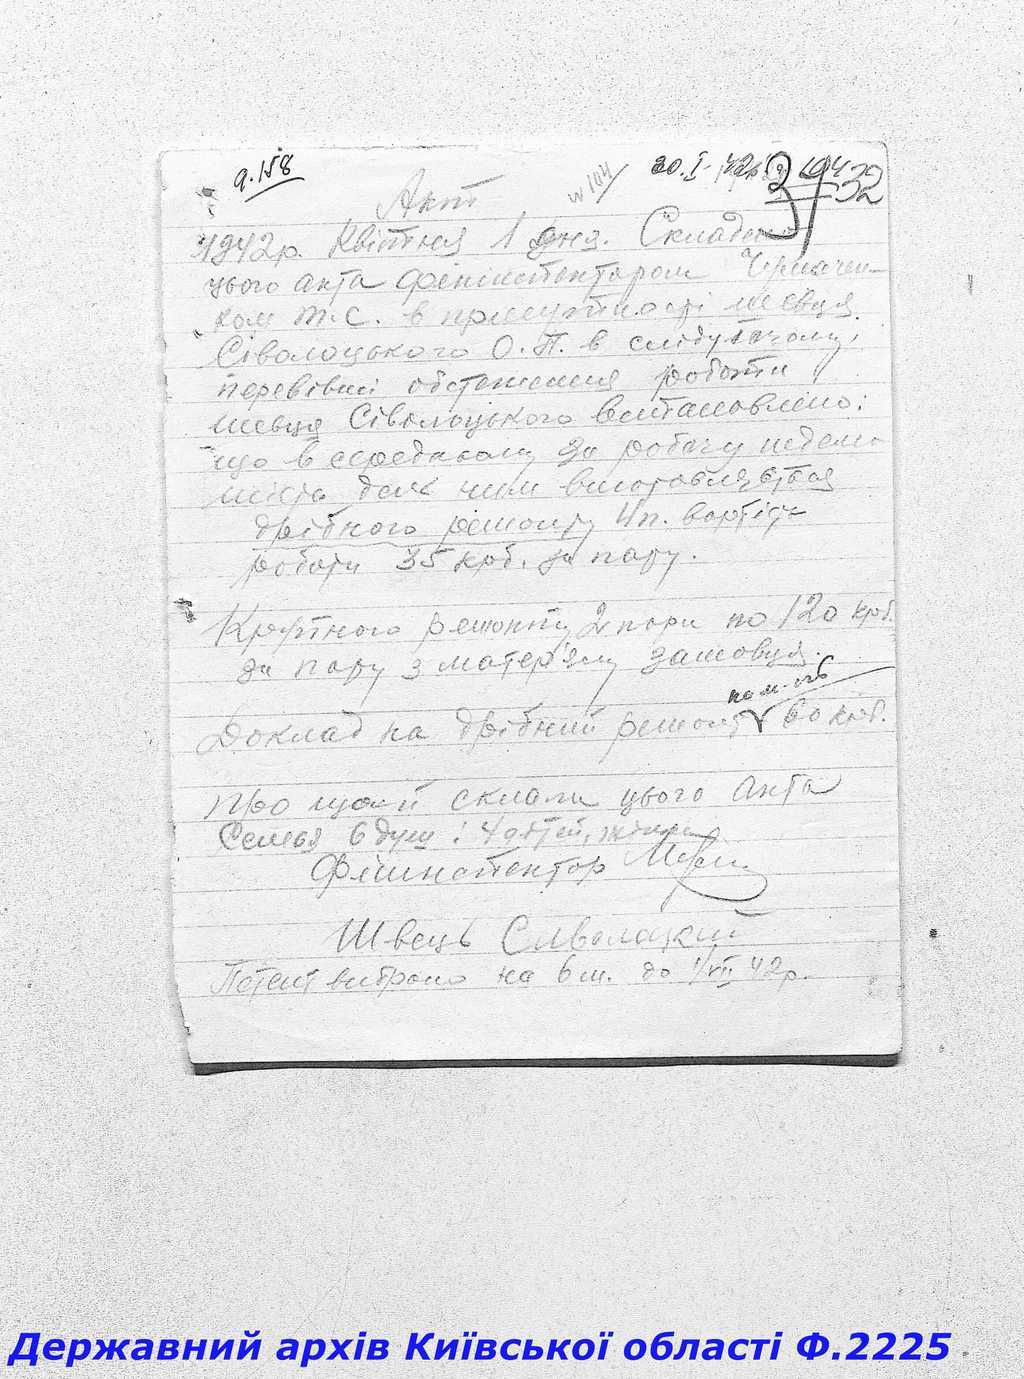 д.158
№ 104
30.I-42р
32
Акт
1942р. Квітня 1 дня. Складено
цього акта фінінспектором
ком М.С. в присутності шевця
Сіволоцького О.П. в слідуючому,
перевівши обстеження роботи
шевця Сіволоцького встановлено:
що в середньому за робочу неделю
виготовляється
дрібного ремонту 4п. вартість
роботи 35 крб. за пару.
Крупного ремонту 2 пари по 120 крб.
за пару з матер'ялу замовця.
Доклад на дрібний ремонт 60 крб.
Про що й склали цього акта
Семья 6 душ: 4 дітей, жінка
Фінинспектор
Швець Сиволоцкий
Потент вибрано на 6 м. до 1/VII 42р.
Державний архів Київської області Ф.2225